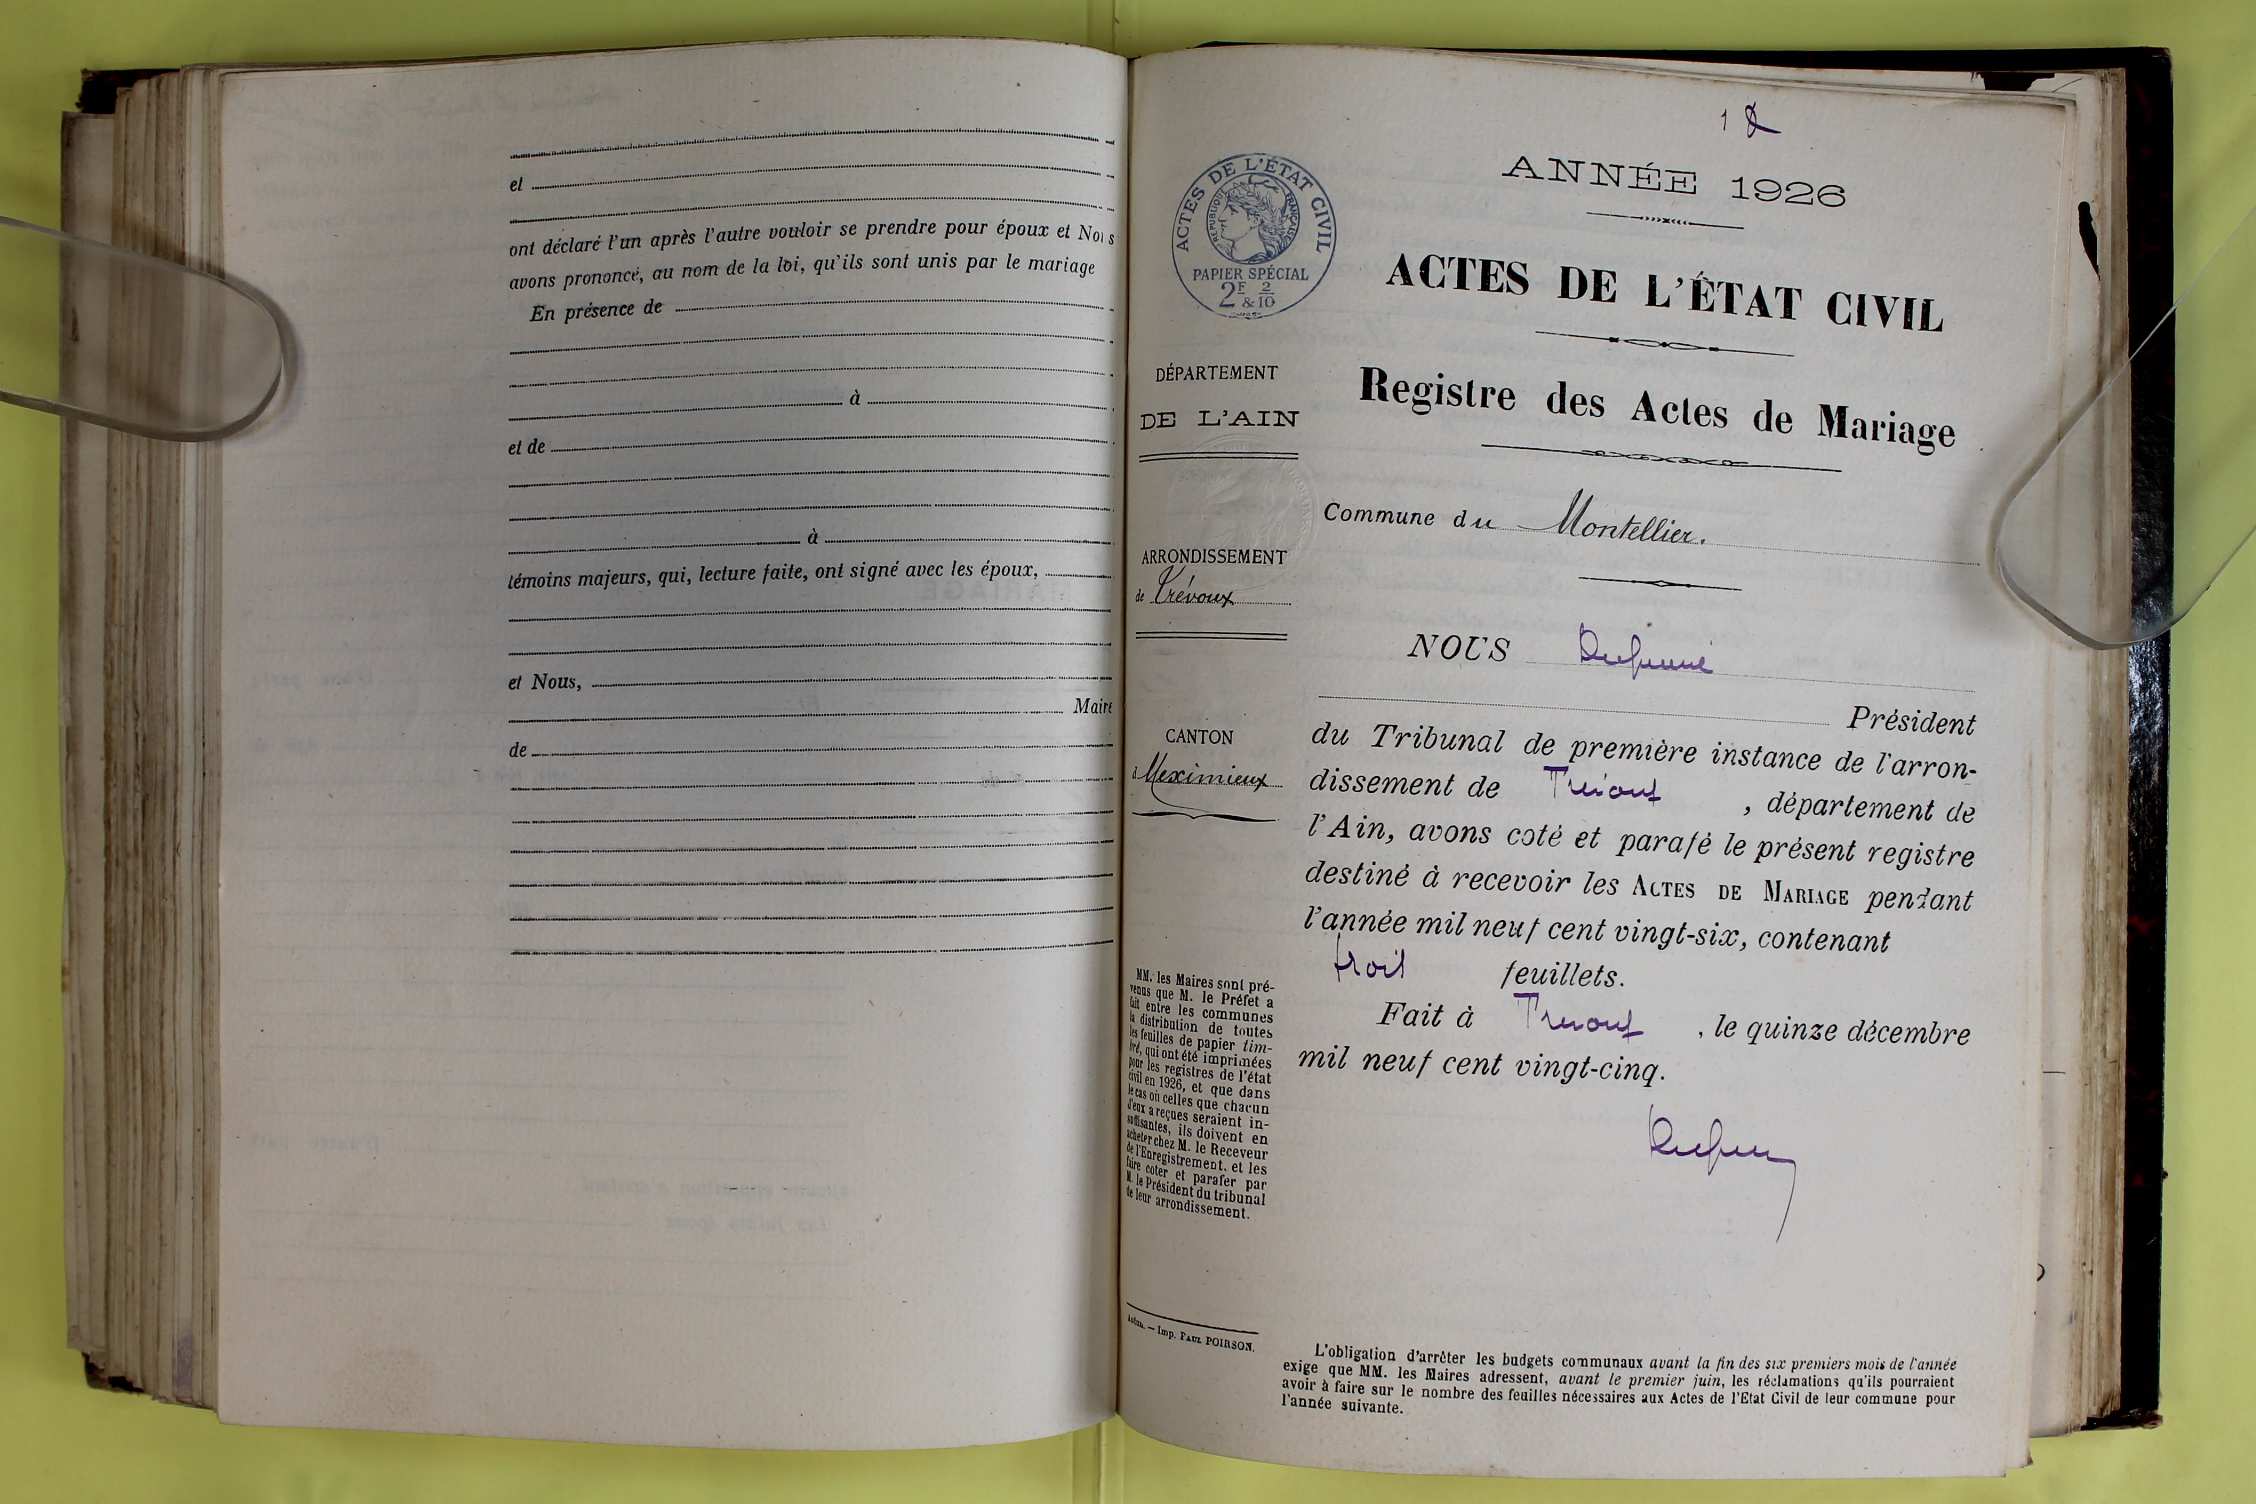 et
ont déclaré l'un après l'autre vouloir se prendre pour époux et Nous
avons prononcé, au nom de la loi, qu'ils sont unis par le mariage
En présence de
à
et de
à
témoins majeurs, qui, lecture faite, ont signé avec les époux,
et Nous,
Maire
de
1
ANNÉE 1926
ACTES DE L'ÉTAT CIVIL
RÉPUBLIQUE FRANÇAISE
PAPIER SPÉCIAL
2F & 2/10
ACTES DE L'ÉTAT CIVIL
Registre des Actes de Mariage
DÉPARTEMENT
DE L'AIN
ARRONDISSEMENT
de Trévoux
CANTON
d Meximieux
MM. les Maires sont pré-
venus que M. le Préfet a
fait entre les communes
la distribution de toutes
les feuilles de papier tim-
bré, qui ont été imprimées
pour les registres de l'état
civil en 1926, et que dans
le cas où celles que chacun
d'eux a reçues seraient in-
suffisantes, ils doivent en
acheter chez M. le Receveur
de l'Enregistrement, et les
faire coter et parafer par
M. le Président du tribunal
de leur arrondissement.
— Imp. PAUL POIRSON.
Commune du Montellier.
NOUS
Président
du Tribunal de première instance de l'arron-
dissement de Trévoux, département de
l'Ain, avons coté et parafé le présent registre
destiné à recevoir les ACTES DE MARIAGE pendant
l'année mil neuf cent vingt-six, contenant
trois feuillets.
Fait à Trévoux, le quinze décembre
mil neuf cent vingt-cinq.
L'obligation d'arrêter les budgets communaux avant la fin des six premiers mois de l'année
exige que MM. les Maires adressent, avant le premier juin, les réclamations qu'ils pourraient
avoir à faire sur le nombre des feuilles nécessaires aux Actes de l'Etat Civil de leur commune pour
l'année suivante.